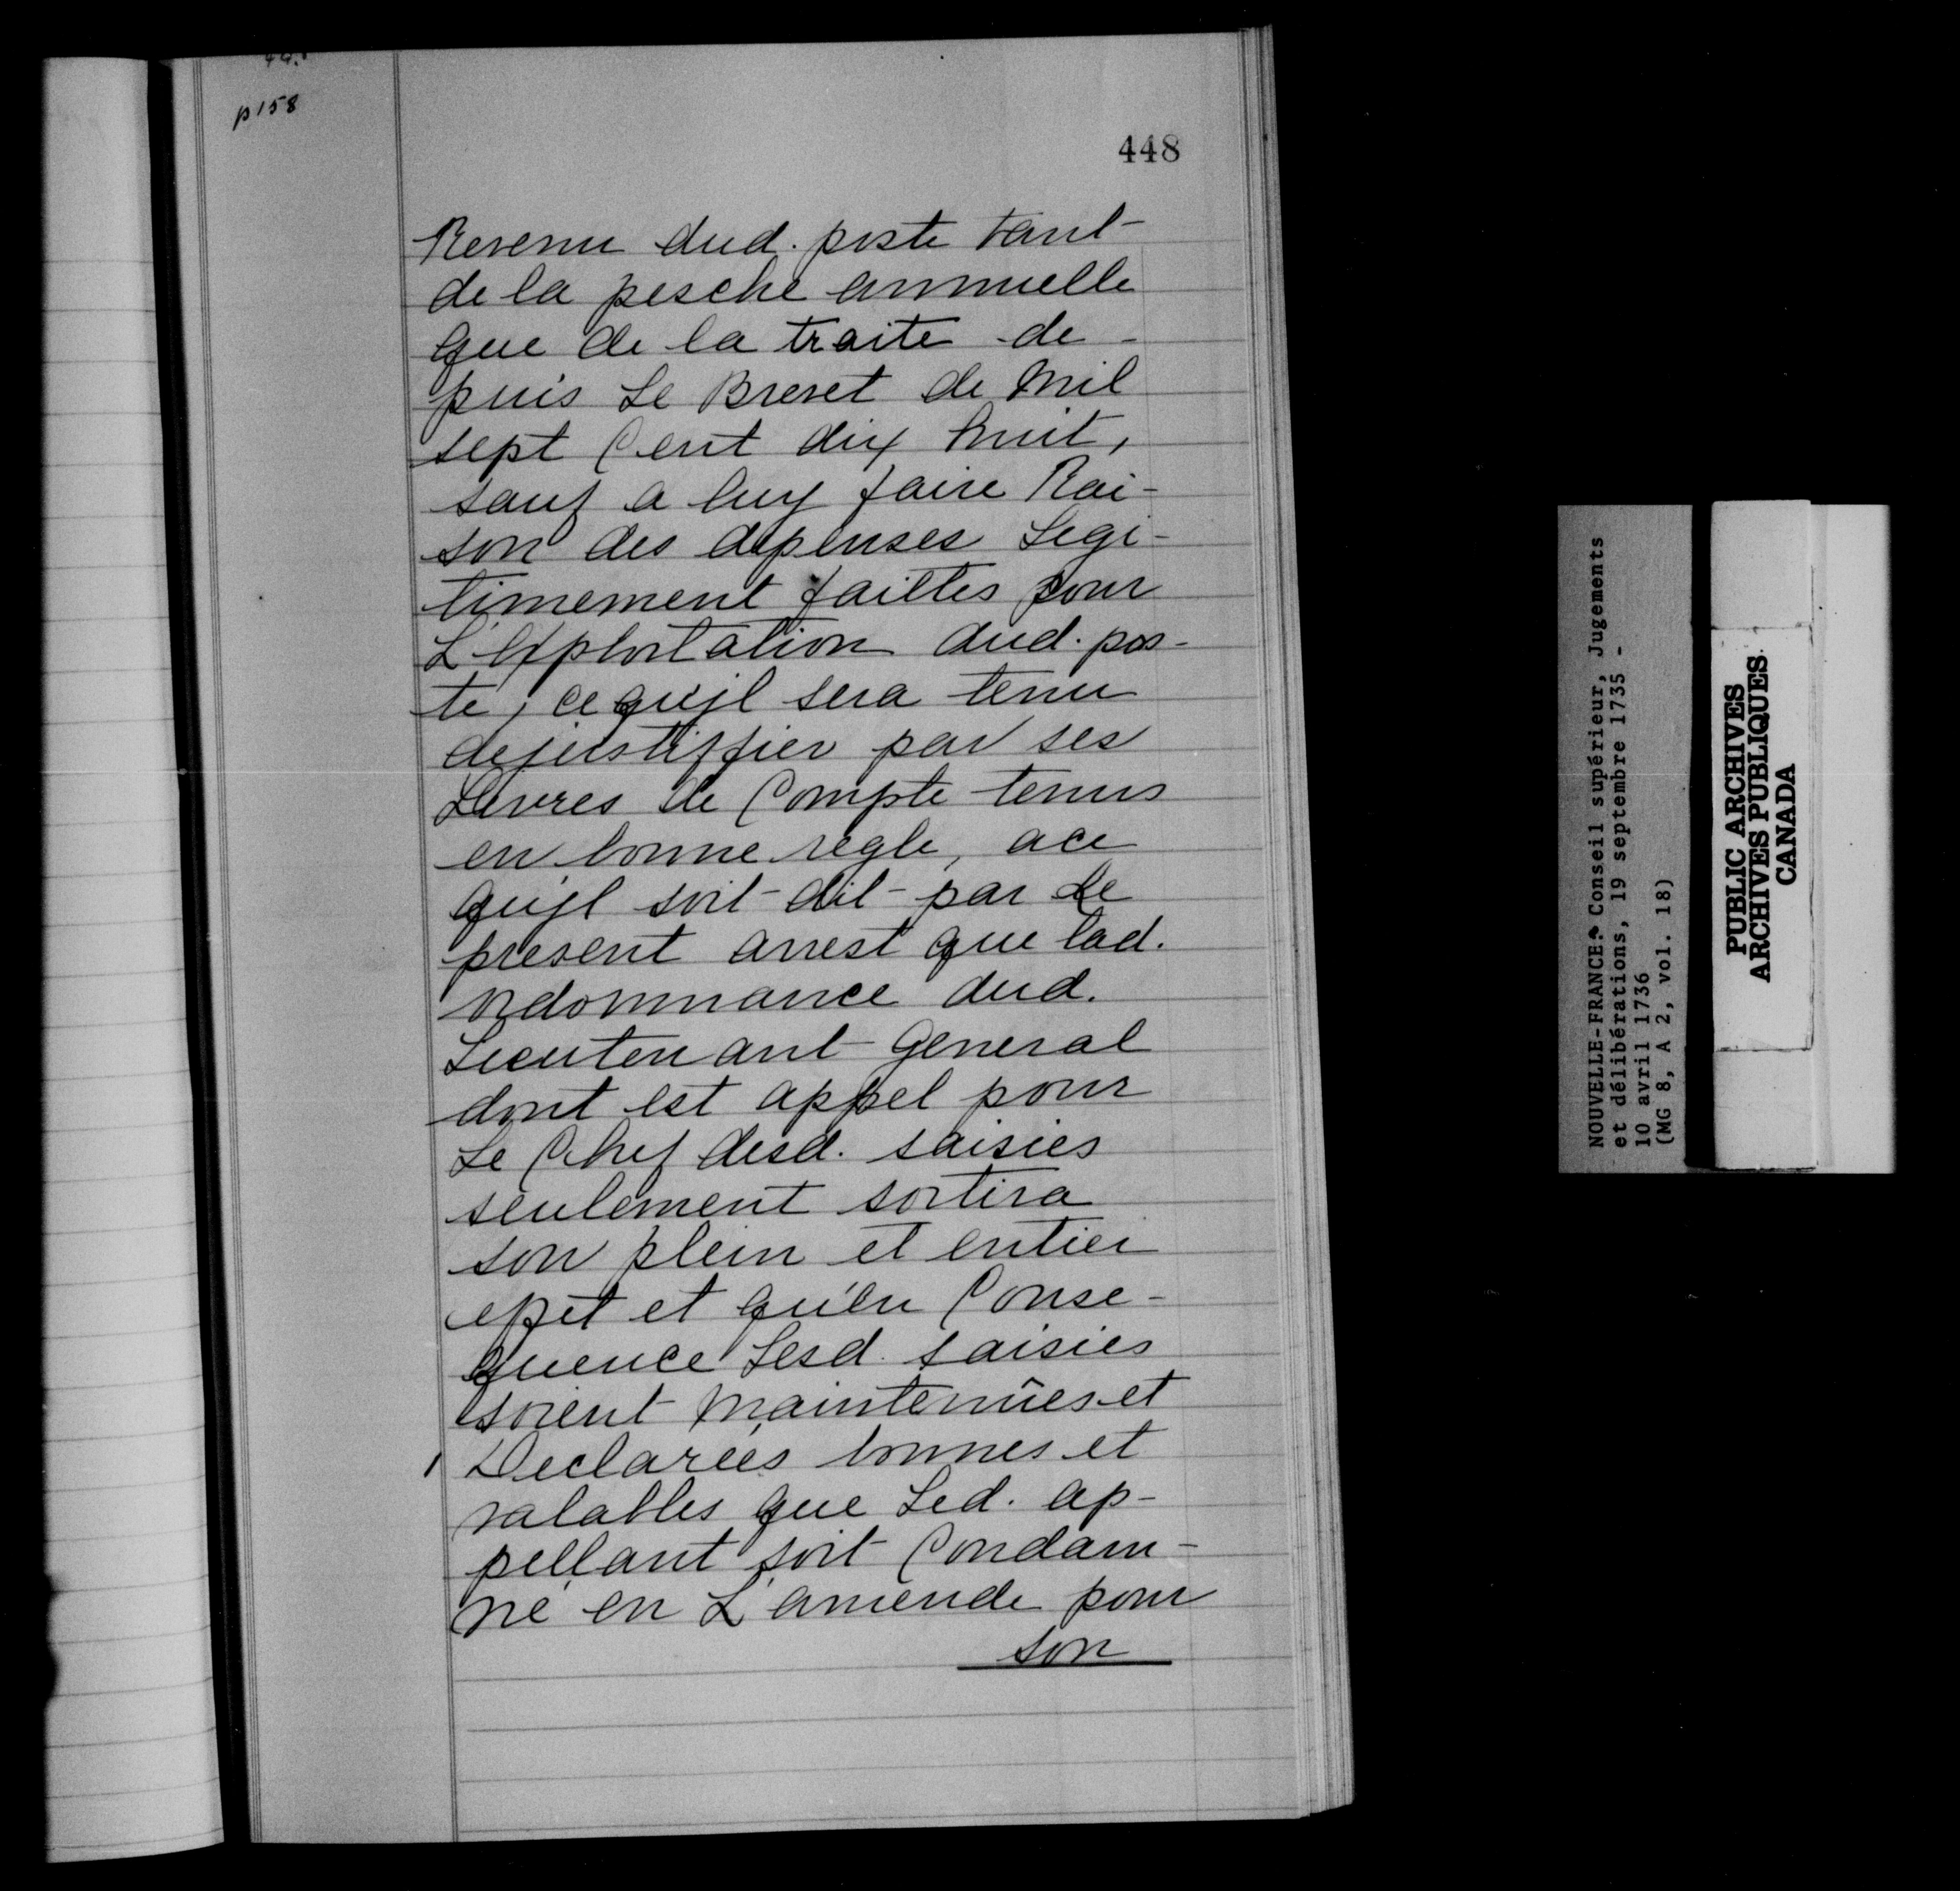 p158
448
Revenu dud. poste tant
de la pesche annuelle
que de la traite de-
puis Le Brevet de Mil
sept Cent dix huit,
sauf a luy faire Rai-
son des depenses Legi-
timement faittes pour
L'exploitation dud. pos-
te, cequ'jl sera tenu
dejustiffier par ses
Livres de Compte tenus
en bonne regle, ace
qu'jl soit dit par Le
present arrest que lad.
ordonnance dud.
Lieutenant General
dont est appel pour
Le Chef desd. saisies
seulement sortira
son plein et entier
effet et qu'en Conse-
quence Lesd. saisies
soient Maintenûes et
Declarées bonnes et
valables que Led. ap-
pellant soit Condam-
né en L'amende pour
son
NOUVELLE-FRANCE. Conseil supérieur, Jugements
et délibérations, 19 septembre 1735 -
10 avril 1736
(MG 8, A 2, vol. 18)
PUBLIC ARCHIVES
ARCHIVES PUBLIQUES
CANADA